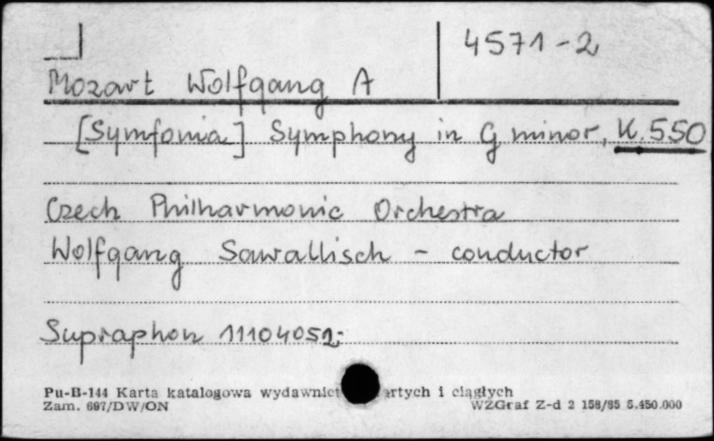 4571-2
Mozart Wolfgang A
[Symfonia] Symphony in G minor, K.550
Czech Philharmonic Orchestra
Wolfgang Sawallisch - conductor
Supraphon 11104052-
Pu-B-144 Karta katalogowa wydawnict artych i ciągłych
Zam. 697/DW/ON WZGraf Z-d 2 158/85 5.450.000